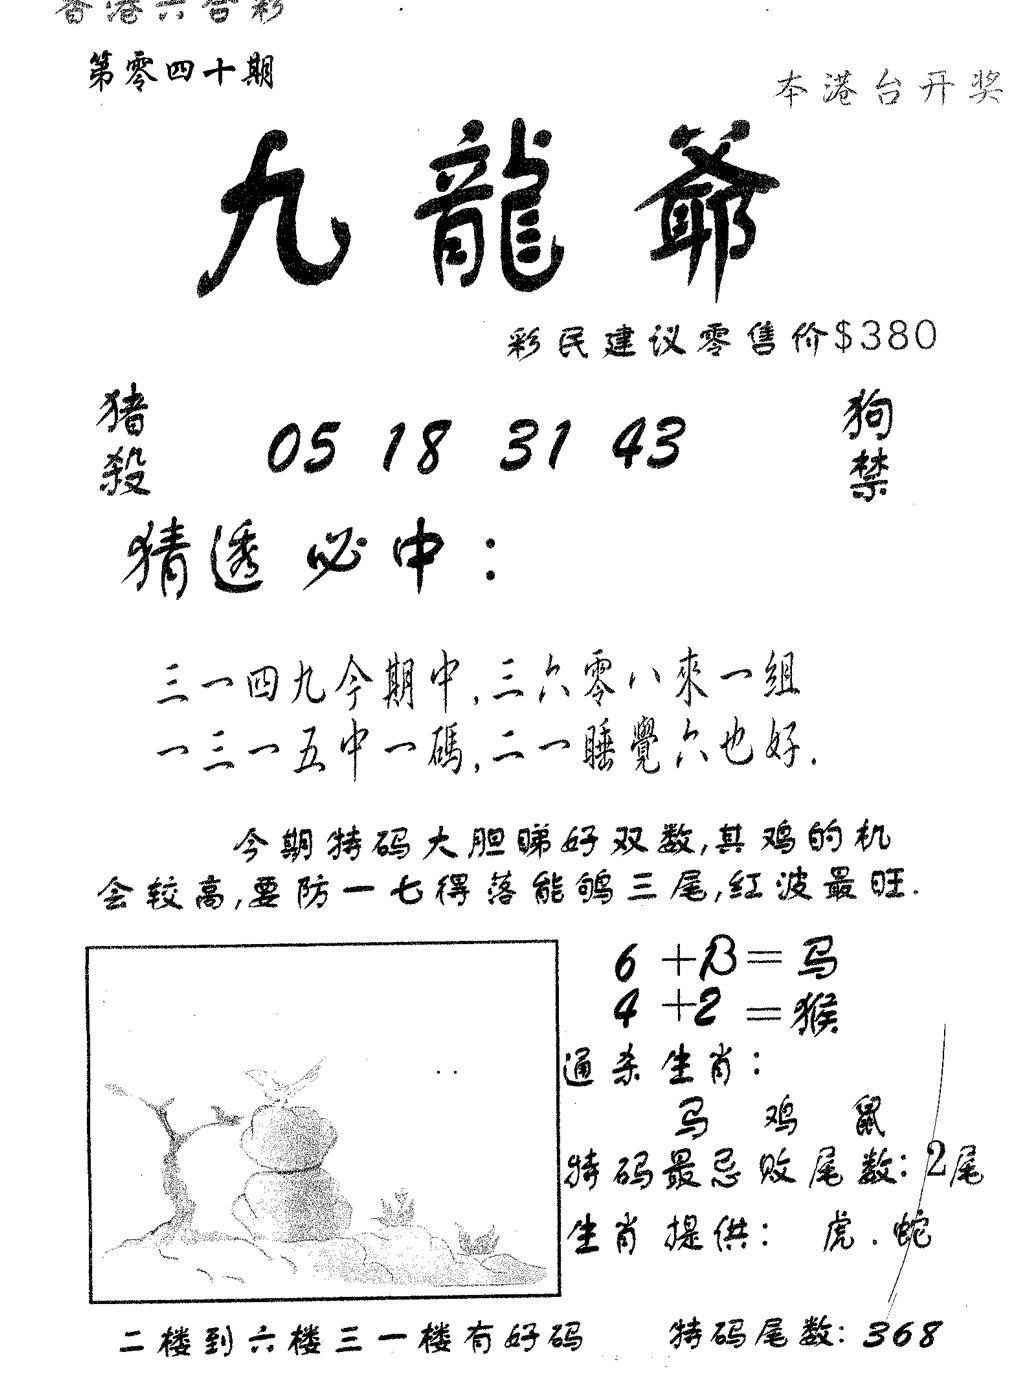 香港六合彩
第零四十期
本港台开奖
九龍爺
彩民建议零售价$380
猪殺 05 18 31 43 狗禁
猜透必中：
三一四九今期中,三六零八來一組
一三一五中一碼,二一睡覺六也好.
今期特码大胆睇好双数,其鸡的机
会较高,要防一七得落能够三尾,红波最旺.
6+13=马
4+2=猴
通杀生肖：
马 鸡 鼠
特码最忌败尾数：2尾
生肖提供：虎.蛇
二楼到六楼三一楼有好码 特码尾数：368